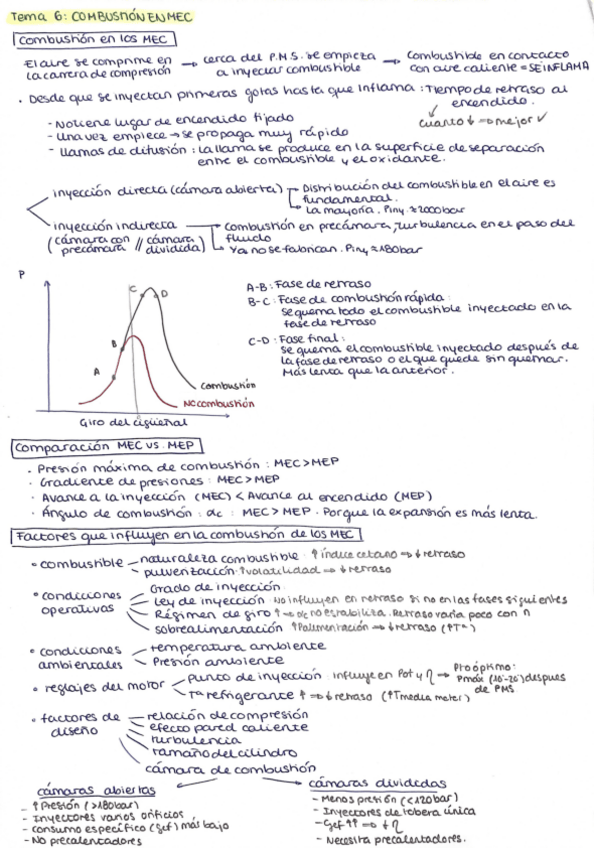 Tema 6: COMBUSTIÓN EN MEC
Combustión en los MEC
El aire se comprime en la carrera de compresión → cerca del P.M.S. se empieza a inyectar combustible → Combustible en contacto con aire caliente = SE INFLAMA
· Desde que se inyectan primeras gotas hasta que inflama: Tiempo de retraso al encendido.
cuanto ↓ ⇒ mejor ✓
- No tiene lugar de encendido fijado
- Una vez empiece → se propaga muy rápido
- llamas de difusión: la llama se produce en la superficie de separación
entre el combustible y el oxidante.
inyección directa (cámara abierta)
Distribución del combustible en el aire es
fundamental.
La mayoría. Piny ≈ 2000bar
inyección indirecta
(cámara con precámara // cámara dividida)
combustión en precámara, turbulencia en el paso del
fluido
Ya no se fabrican. Piny ≈ 180bar
P
A
B
C
D
combustión
No combustión
Giro del cigüeñal
A-B: Fase de retraso
B-C: Fase de combustión rápida:
se quema todo el combustible inyectado en la
fase de retraso
C-D: Fase final:
se quema el combustible inyectado después de
la fase de retraso o el que quede sin quemar.
Más lenta que la anterior.
Comparación MEC vs. MEP
· Presión máxima de combustión: MEC > MEP
· Gradiente de presiones: MEC > MEP
· Avance a la inyección (MEC) < Avance al encendido (MEP)
· Ángulo de combustión: αc: MEC > MEP. Porque la expansión es más lenta.
Factores que influyen en la combustión de los MEC
· combustible
naturaleza combustible ↑ índice cetano ⇒ ↓ retraso
pulverización ↑ volatilidad ⇒ ↓ retraso
· condiciones operativas
Grado de inyección
Ley de inyección No influyen en retraso si no en las fases siguientes
Régimen de giro ↑ ⇒ αc no estabiliza. Retraso varía poco con n
sobrealimentación ↑ Palimentación ⇒ ↓ retraso (↑Tª)
· condiciones ambientales
temperatura ambiente
Presión ambiente
· reglajes del motor
punto de inyección: influye en Pot y η → Pto óptimo:
Pmáx (10°-20°) despues
de PMS
Tª refrigerante ↑ ⇒ ↓ retraso (↑T media motor)
· factores de diseño
relación de compresión
efecto pared caliente
turbulencia
tamaño del cilindro
cámara de combustión
cámaras abiertas
- ↑ Presión (>180bar)
- Inyectores varios orificios
- consumo específico (gef) más bajo
- No precalentadores
cámaras divididas
- Menos presión (<120bar)
- Inyectores de tobera única
- Gef ↑↑ ⇒ ↓ η
- Necesita precalentadores.